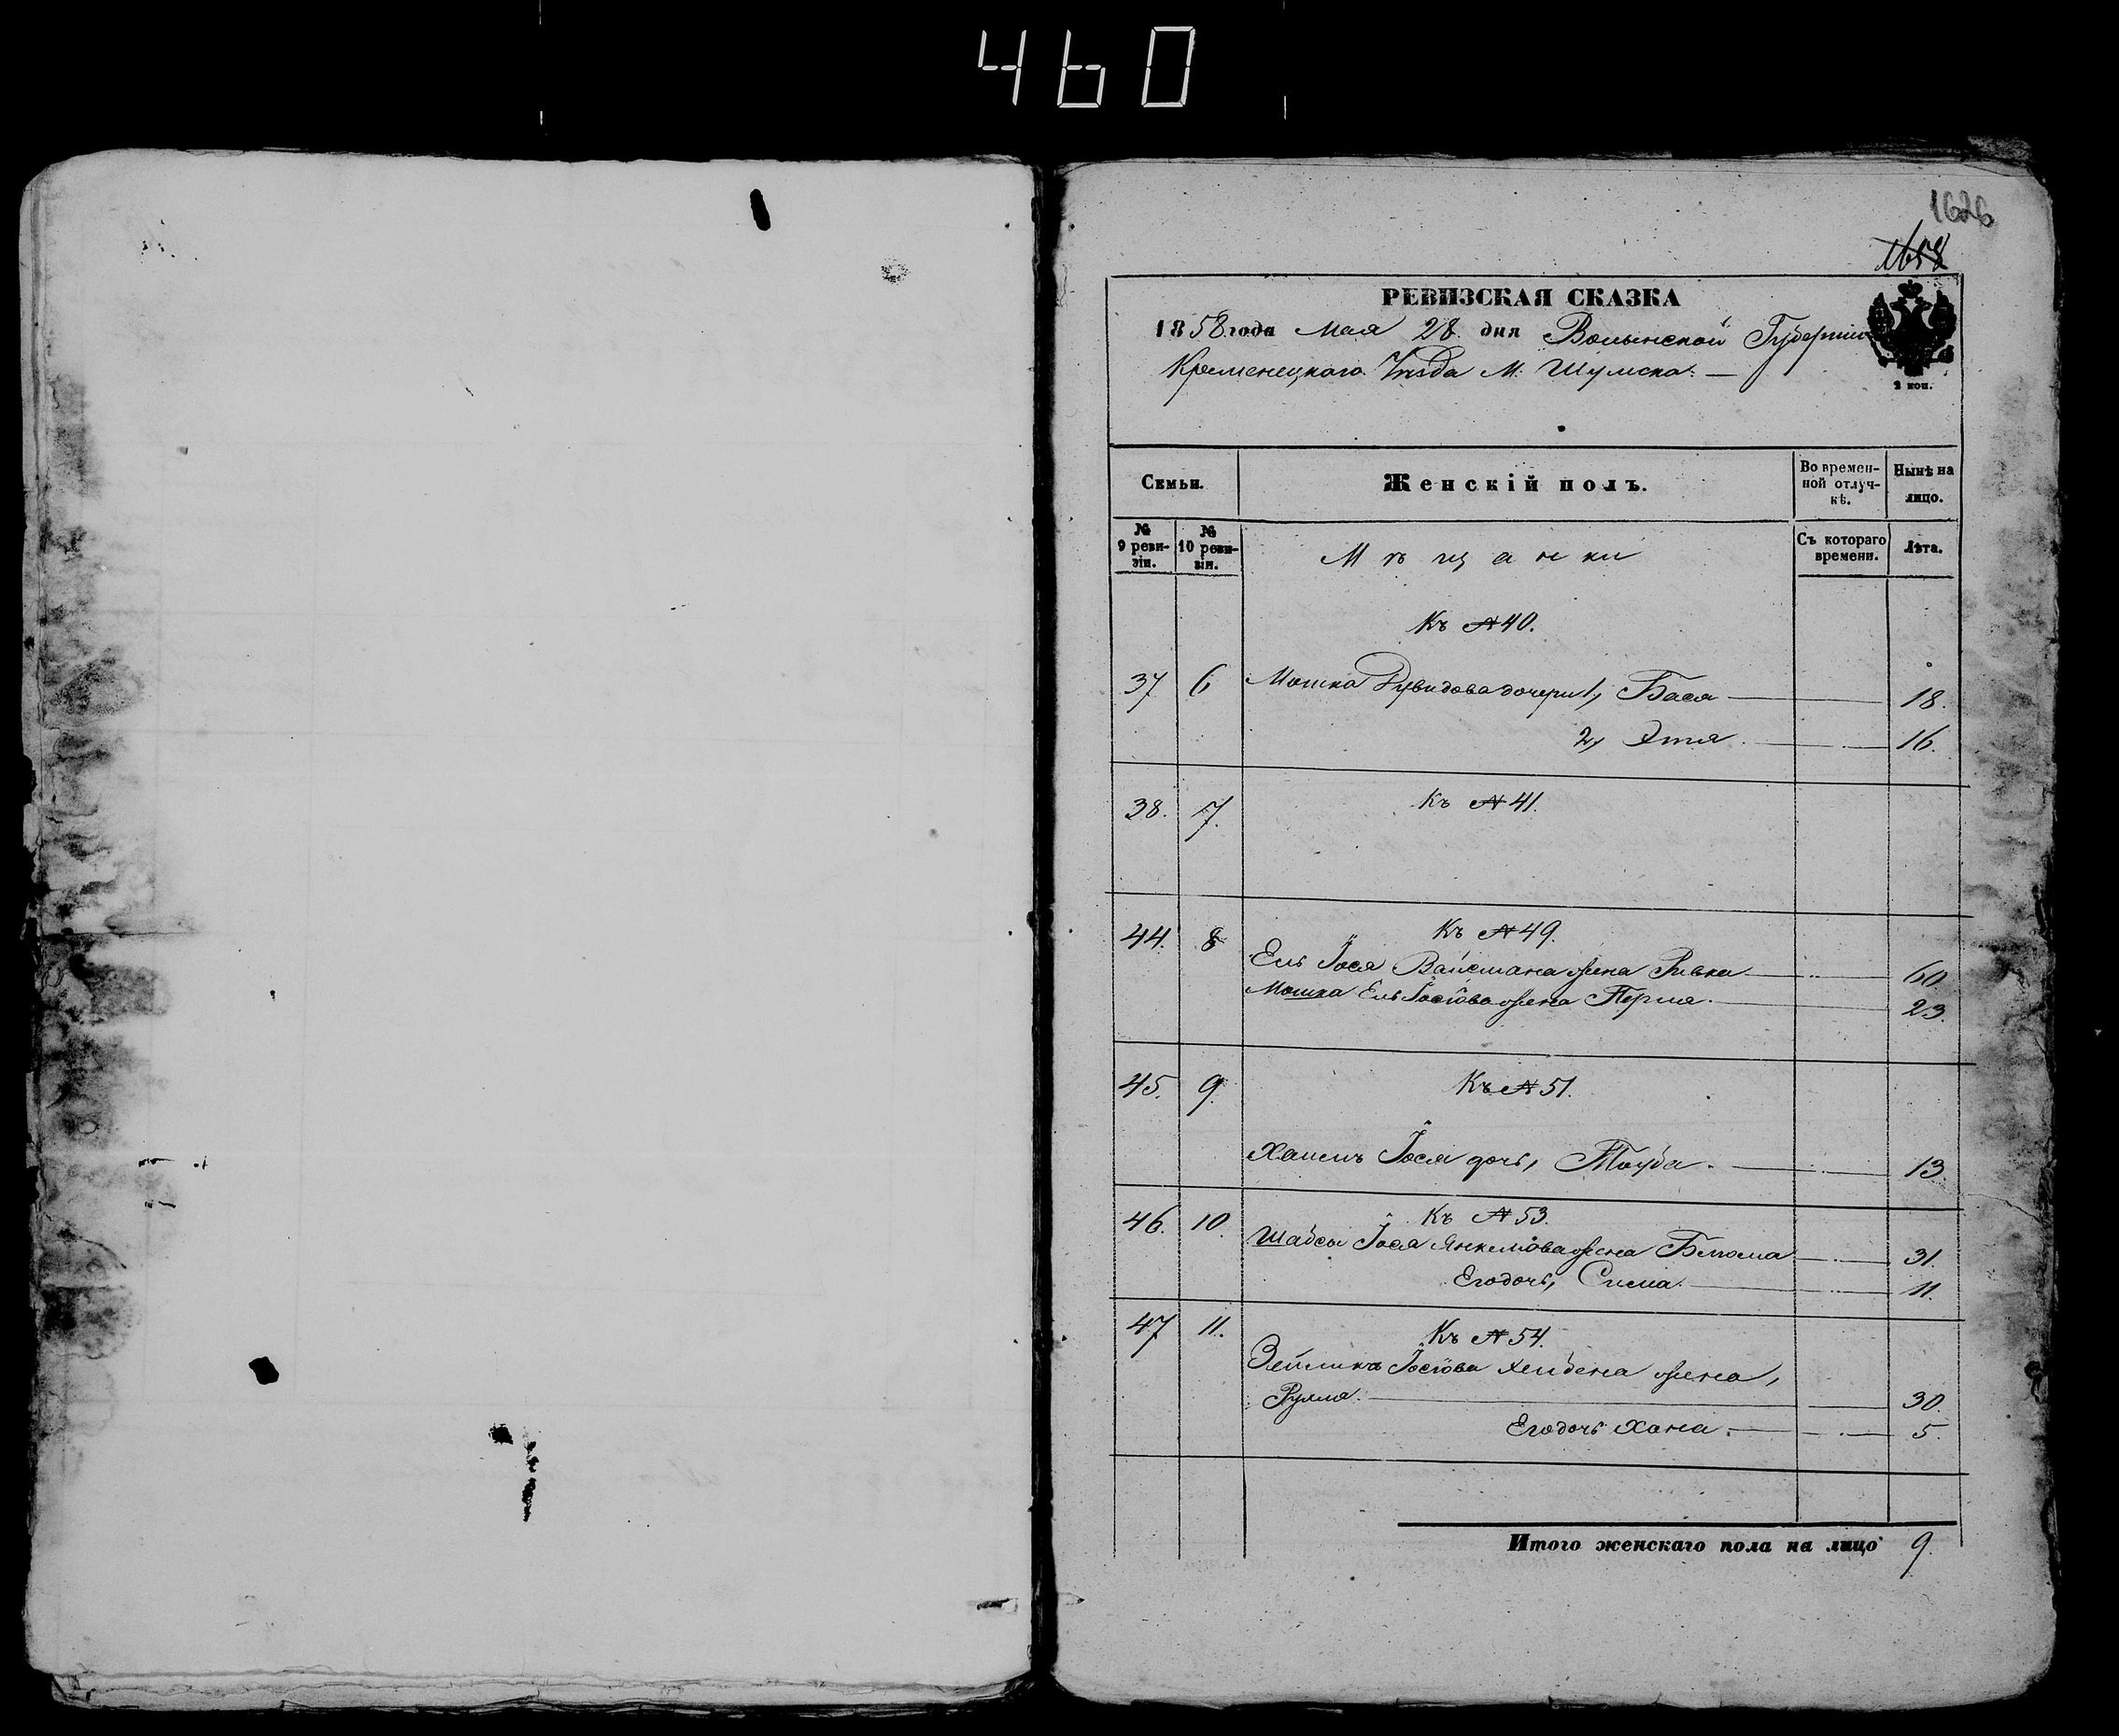 460
1626
1658
РЕВИЗСКАЯ СКАЗКА
1858 года Мая 28 дня Волынской Губернiи
Кременецкаго Уѣзда М. Шумска. —
2 коп.
Семьи.
Женскiй полъ.
Во времен-
ной отлуч-
кѣ.
Нынѣ на
лицо.
№
9 реви-
зiи.
№
10 реви-
зiи.
Мѣщанки
Съ котораго
времени.
Лѣта.
Къ № 40.
37 6 Мошка Дувидова дочери 1, Бася — 18.
2, Этя — 16.
38. 7. Къ № 41.
44. 8 Къ № 49.
Ель Iося Вайсмана жена Ривка — 60
Мошка Ель Iосiова жена Перля. — 23.
45. 9. Къ № 51.
Хаимъ Iося дочь, Тауба. — 13
46. 10. Къ № 53.
Шабсы Iося Янкелiова жена Блюма — 31.
Его дочь, Сима. — 11.
47 11. Къ № 54.
Зейлика Iосiова жена,
Рухля. — 30.
Его дочь Хана. — 5.
Итого женскаго пола на лицо 9.